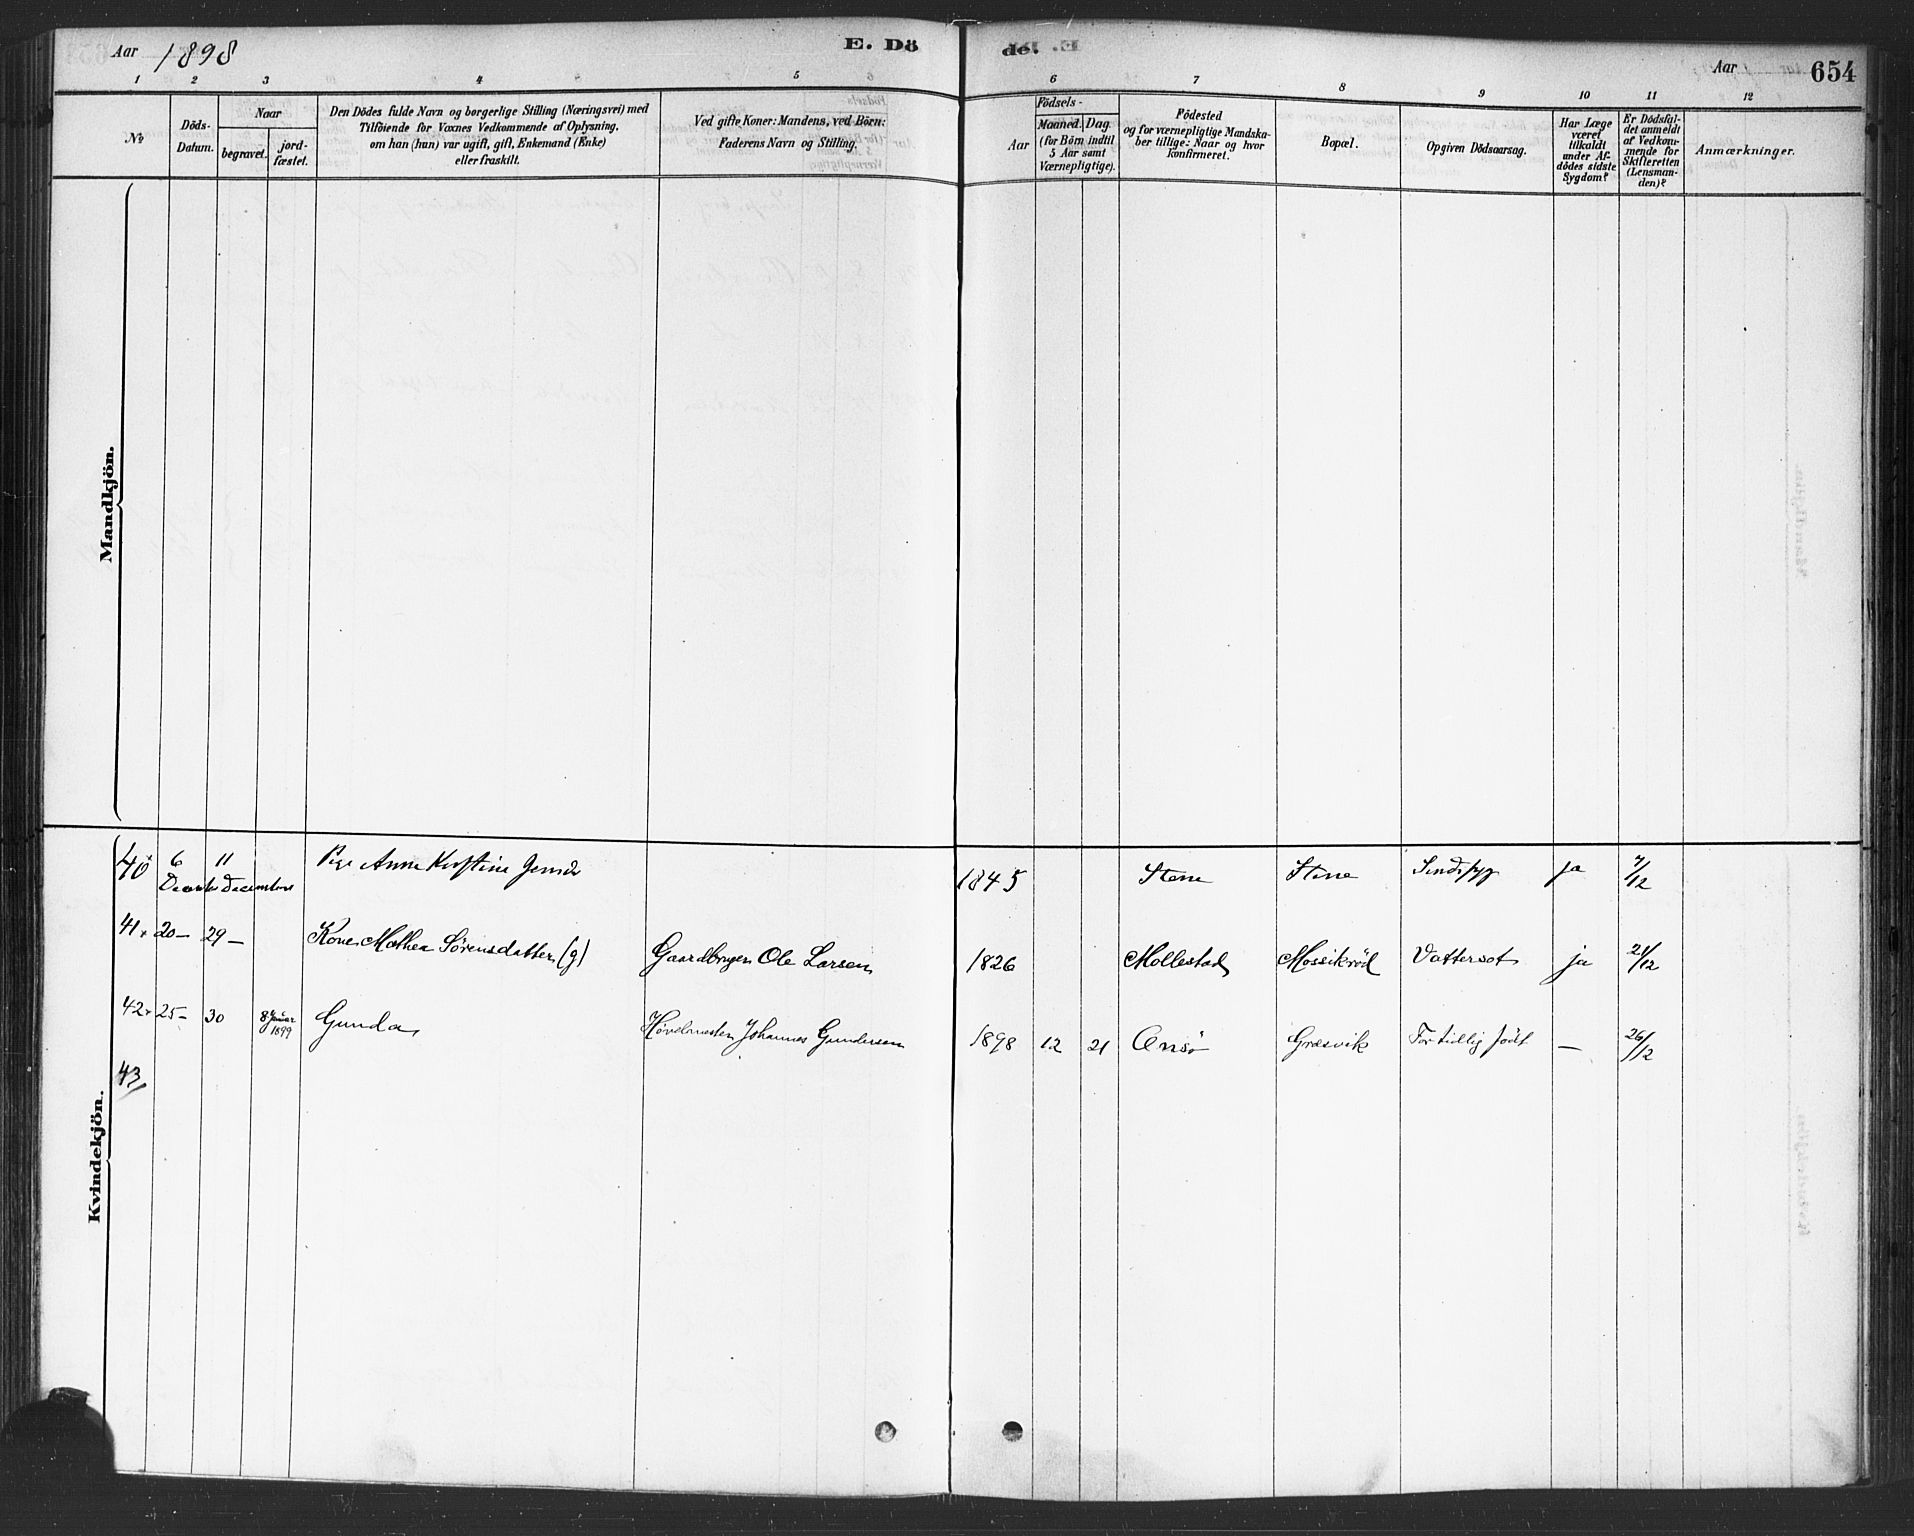 Aar 1898 E. Dö de. Aar 654
1 2 3 4 5 6 7 8 9 10 11 12
№
Döds-
Datum.
Naar
begravet.
jord-
fæstet.
Den Dödes fulde Navn og borgerlige Stilling (Næringsvei) med
Tilföiende for Voxnes Vedkommende af Oplysning,
om han (hun) var ugift, gift, Enkemand (Enke)
eller fraskilt.
Ved gifte Koner: Mandens, ved Börn:
Faderens Navn og Stilling.
Födsels-
Aar
Maaned. Dag
(for Börn indtil
5 Aar samt
Værnepligtige).
Födested
og for værnepligtige Mandska-
ber tillige: Naar og hvor
konfirmeret.
Bopæl.
Opgiven Dödsaarsag.
Har Læge
været
tilkaldt
under Af-
dödes sidste
Sygdom?
Er Dödsfal-
det anmeldt
af Vedkom-
mende for
Skifteretten
(Lensman-
den)?
Anmærkninger.
Mandkjön.
Kvindekjön.
40 6 11 Pige Anne Kirstine 1845 Stene Stene Sindssyg ja 7/12
December
41 20 – 29 – Kone Mathea Sörensdatter (g) Gaardbruger Ole Larsen 1826 Mollestad Mossikröd Vattersot ja 21/12
42 25 – 30 8 Januar 1899 Gunda Johannes Gundersen 1898 12 21 Onsö Græsvik For tidlig födt — 26/12
43